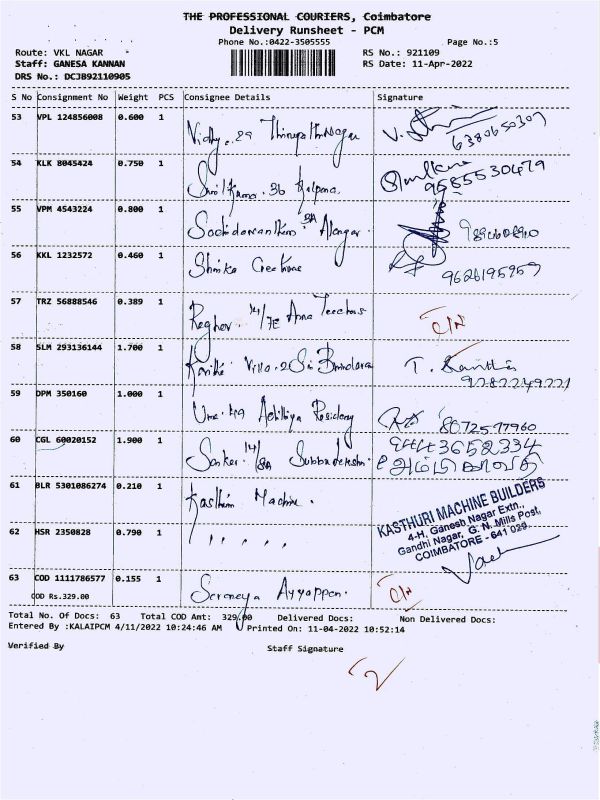 THE PROFESSIONAL COURIERS, Coimbatore
Delivery Runsheet - PCM
Phone No.:0422-3505555 Page No.:5
Route: VKL NAGAR RS No.: 921109
Staff: GANESA KANNAN RS Date: 11-Apr-2022
DRS No.: DCJ892110905
S No Consignment No Weight PCS Consignee Details Signature
53 VPL 124856008 0.600 1 Vidhya. 29 6380650307
54 KLK 8045424 0.750 1 36 Kalpana 9585530479
55 VPM 4543224 0.800 1
56 KKL 1232572 0.460 1 Shrika Creations 9626195959
57 TRZ 56888546 0.389 1 14/7E Anna C/N
58 SLM 293136144 1.700 1 T. Kanthi
59 DPM 350160 1.000 1 Uma. 8072577960
60 CGL 60020152 1.900 1 14/8A
61 BLR 5301086274 0.210 1 Machine. KASTHURI MACHINE BUILDERS
4-H, Ganesh Nagar Extn.,
62 HSR 2350828 0.790 1 , , , , , Gandhi Nagar, G. N. Mills Post,
COIMBATORE - 641 029.
63 COD 1111786577 0.155 1 Ayyappan. C/N
COD Rs.329.00
Total No. Of Docs: 63 Total COD Amt: 329.00 Delivered Docs: Non Delivered Docs:
Entered By :KALAIPCM 4/11/2022 10:24:46 AM Printed On: 11-04-2022 10:52:14
Verified By Staff Signature
2